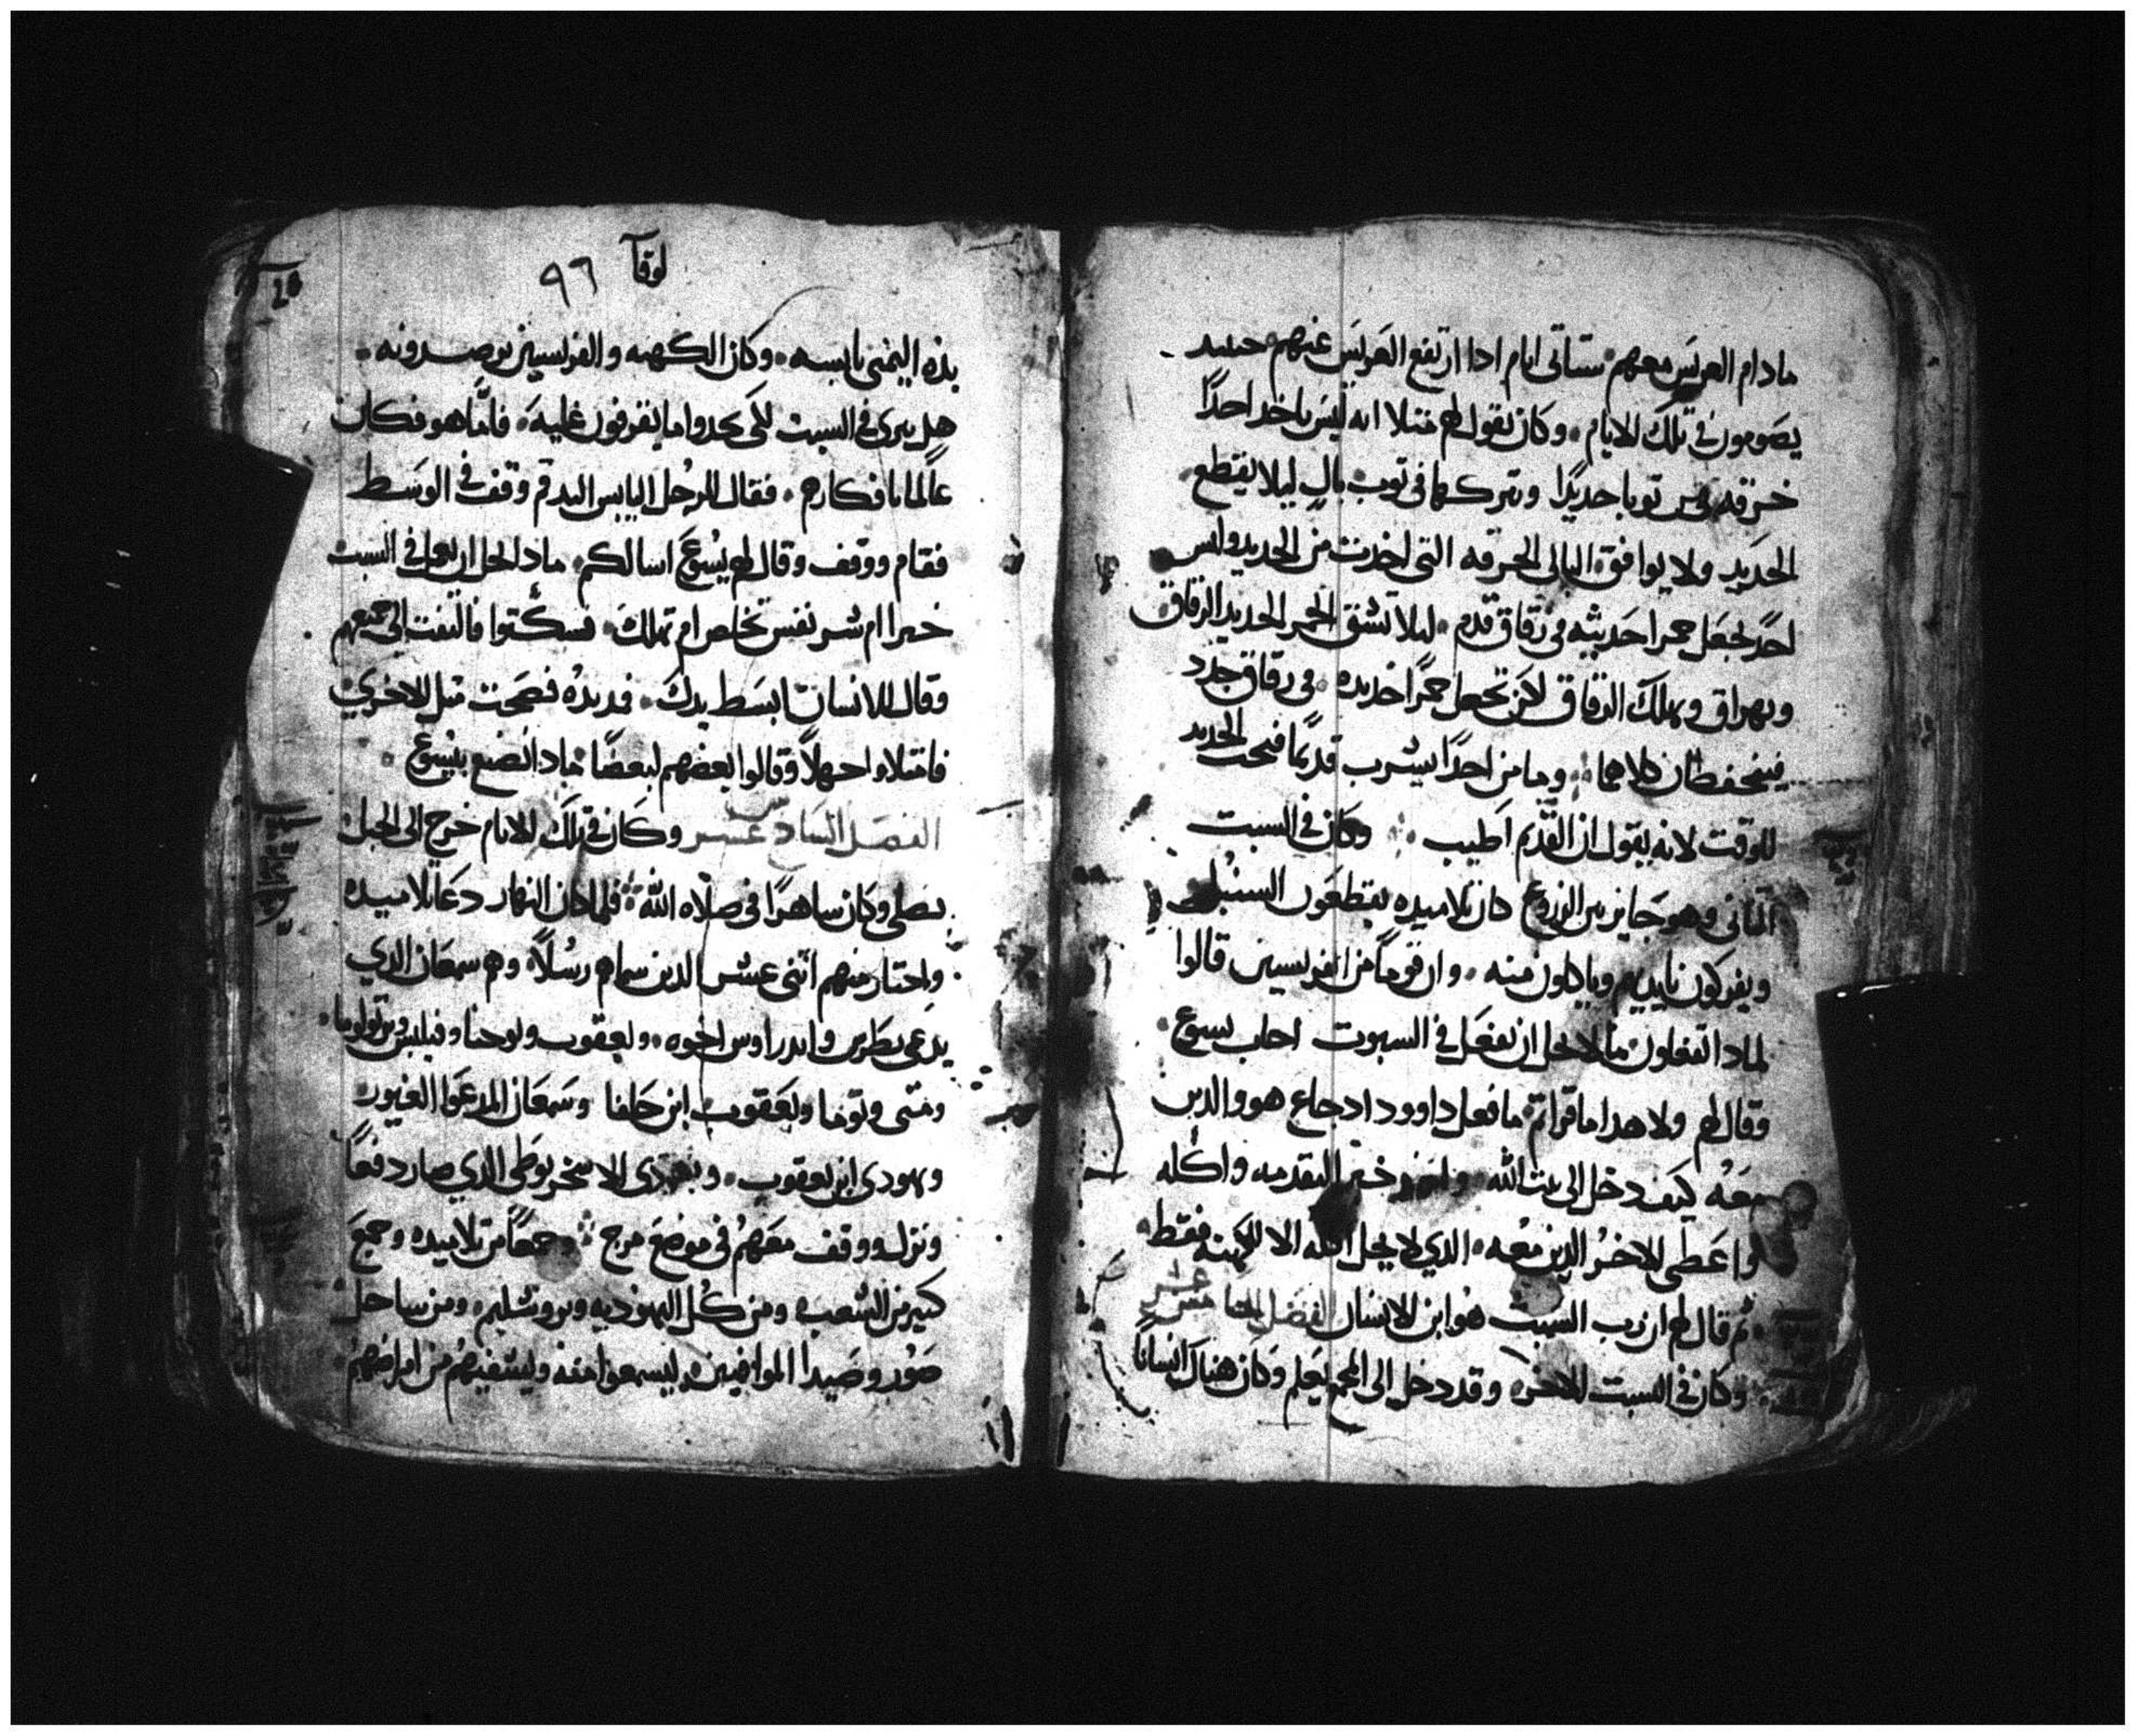 مادام العريس معهم ستاتى ايام ادا ارتفع العريس عنهم حينيد
يصومون فى تلك الايام وكان يقول لهم متلا انه ليس ياخد احدًا
خرقه من توبا جديدًا ويتركها فى توب بالٍ ليلا يقطع
الجديد ولا يوافق البالى الخرقه التى اخدت من الجديد وليس
احدً يجعل خمرا حديثه فى زقاق قديم ليلا تشق الخمر الجديد الزقاق
ويهراق ويهلك الزقاق لاكن تجعل خمرًا جديده فى زقاق جدد
فينحفظان كلاهما وما من احدًا يشرب قديمًا فيحب الجديد
للوقت لانه يقول ان القديم اطيب وكان فى السبت
التانى وهو جايز بين الزروع كان تلاميده يقطعون السنبل
ويفركون بايديهم وياكلون منه وان قومًا من الفريسين قالوا
لمادا تفعلون ما لا يحل ان يفعل فى السبوت اجاب يسوع
وقال لهم ولا هدا ما قراتم ما فعل داوود اد جاع هو والدين
معه كيف دخل الى بيت الله واخد خبز التقدمه واكله
واعطى للاخر الدين معه الدي لا يحل اكله الا للكهنه فقط
تم قال لهم ان رب السبت هو ابن الانسان الفصل الخامس عشر
وكان فى السبت الاخر وقد دخل الى المجمع يعلم وكان هناك انسانًا
لوقا ٩٦
يده اليمنى يابسه وكان الكهنه والفريسين يرصدونه
هل يبرى فى السبت لكى يجدوا ما يقرفون عليه فاما هو فكان
عالمًا بافكارهم فقال للرجل اليابس اليد قم وقف فى الوسط
فقام ووقف وقال لهم يسوع اسالكم مادا يحل ان يعمل فى السبت
خيرا ام شر نفس تخلص ام تهلك فسكتوا فالتفت الى جميعهم
وقال للانسان ابسط يدك فمد يده فصحت متل الاخرى
فامتلاوا جهلاً وقالوا بعضهم لبعضًا مادا نصنع بيسوع
الفصل السادس عشر وكان فى تلك الايام خرج الى الجبل
يصلى وكان ساهرًا فى صلاه الله فلما كان النهار دعا تلاميده
واختار منهم اثنى عشر الدين سماهم رسلاً وهم سمعان الدي
يدعى بطرس واندراوس اخوه ويعقوب ويوحنا وفيلبس وبرتولوما
ومتى وتوما ويعقوب ابن حلفا وسمعان المدعوا الغيور
ويهودى ابن يعقوب ويهودى الاسخريوطى الدي صار دفعًا
ونزل ووقف معهم فى موضع مرج وجمعًا من تلاميده وجمع
كبير من الشعب ومن كل اليهوديه ويروشليم ومن ساحل
صور وصيدا الموافيين ليسمعوا منه ويشفيهم من امراضهم